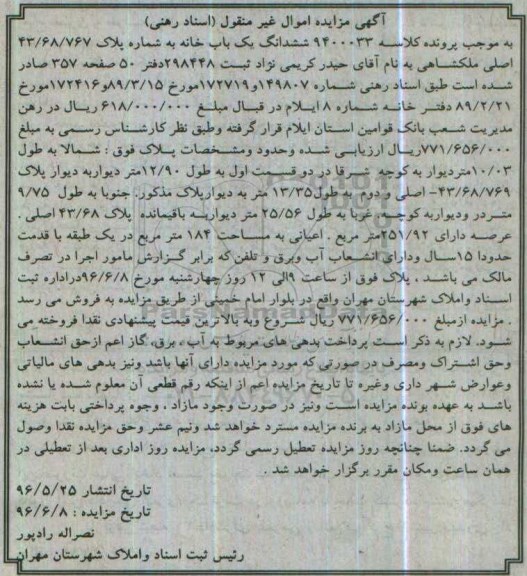 آگهی مزایده اموال غیر منقول (اسناد رهنی)
به موجب پرونده کلاسه ۹۴۰۰۰۳۳ ششدانگ یک باب خانه به شماره پلاک ۴۳/۶۸/۷۶۷
اصلی ملکشاهی به نام آقای حیدر کریمی نژاد ثبت ۲۹۸۴۴۸دفتر ۵۰ صفحه ۳۵۷ صادر
شده است طبق اسناد رهنی شماره ۱۴۹۸۰۷و۱۷۲۷۱۹مورخ ۸۹/۳/۱۵و۱۷۲۴۱۶مورخ
۸۹/۲/۲۱ دفتر خانه شماره ۸ ایلام در قبال مبلغ ۶۱۸/۰۰۰/۰۰۰ ریال در رهن
مدیریت شعب بانک قوامین استان ایلام قرار گرفته وطبق نظر کارشناس رسمی به مبلغ
۷۷۱/۶۵۶/۰۰۰ریال ارزیابی شده وحدود ومشخصات پلاک فوق : شمالا به طول
۱۰/۰۳متردیوار به کوچه شرقا در دو قسمت اول به طول ۱۲/۹۰متر دیواربه دیوار پلاک
۴۳/۶۸/۷۶۹- اصلی و دوم به طول۱۳/۳۵ متر به دیوارپلاک مذکور. جنوبا به طول ۹/۷۵
متردر ودیواربه کوچه. غربا به طول ۲۵/۵۶ متر دیواربه باقیمانده پلاک ۴۳/۶۸ اصلی .
عرصه دارای ۲۵۱/۹۲متر مربع . اعیانی به مساحت ۱۸۴ متر مربع در یک طبقه با قدمت
حدودا ۱۵سال ودارای انشعاب آب وبرق و تلفن که برابر گزارش مامور اجرا در تصرف
مالک می باشد . پلاک فوق از ساعت ۹الی ۱۲ روز چهارشنبه مورخ ۹۶/۶/۸دراداره ثبت
اسناد واملاک شهرستان مهران واقع در بلوار امام خمینی از طریق مزایده به فروش می رسد
. مزایده ازمبلغ ۷۷۱/۶۵۶/۰۰۰ ریال شروع وبه بالاترین قیمت پیشنهادی نقدا فروخته می
شود. لازم به ذکر است پرداخت بدهی های مربوط به آب ، برق، گاز اعم ازحق انشعاب
وحق اشتراک ومصرف در صورتی که مورد مزایده دارای آنها باشد ونیز بدهی های مالیاتی
وعوارض شهر داری وغیره تا تاریخ مزایده اعم از اینکه رقم قطعی آن معلوم شده یا نشده
باشد به عهده برنده مزایده است ونیز در صورت وجود مازاد ، وجوه پرداختی بابت هزینه
های فوق از محل مازاد به برنده مزایده مسترد خواهد شد ونیم عشر وحق مزایده نقدا وصول
می گردد. ضمنا چنانچه روز مزایده تعطیل رسمی گردد، مزایده روز اداری بعد از تعطیلی در
همان ساعت ومکان مقرر برگزار خواهد شد .
تاریخ انتشار ۹۶/۵/۲۵
تاریخ مزایده : ۹۶/۶/۸
نصراله رادپور
رئیس ثبت اسناد واملاک شهرستان مهران